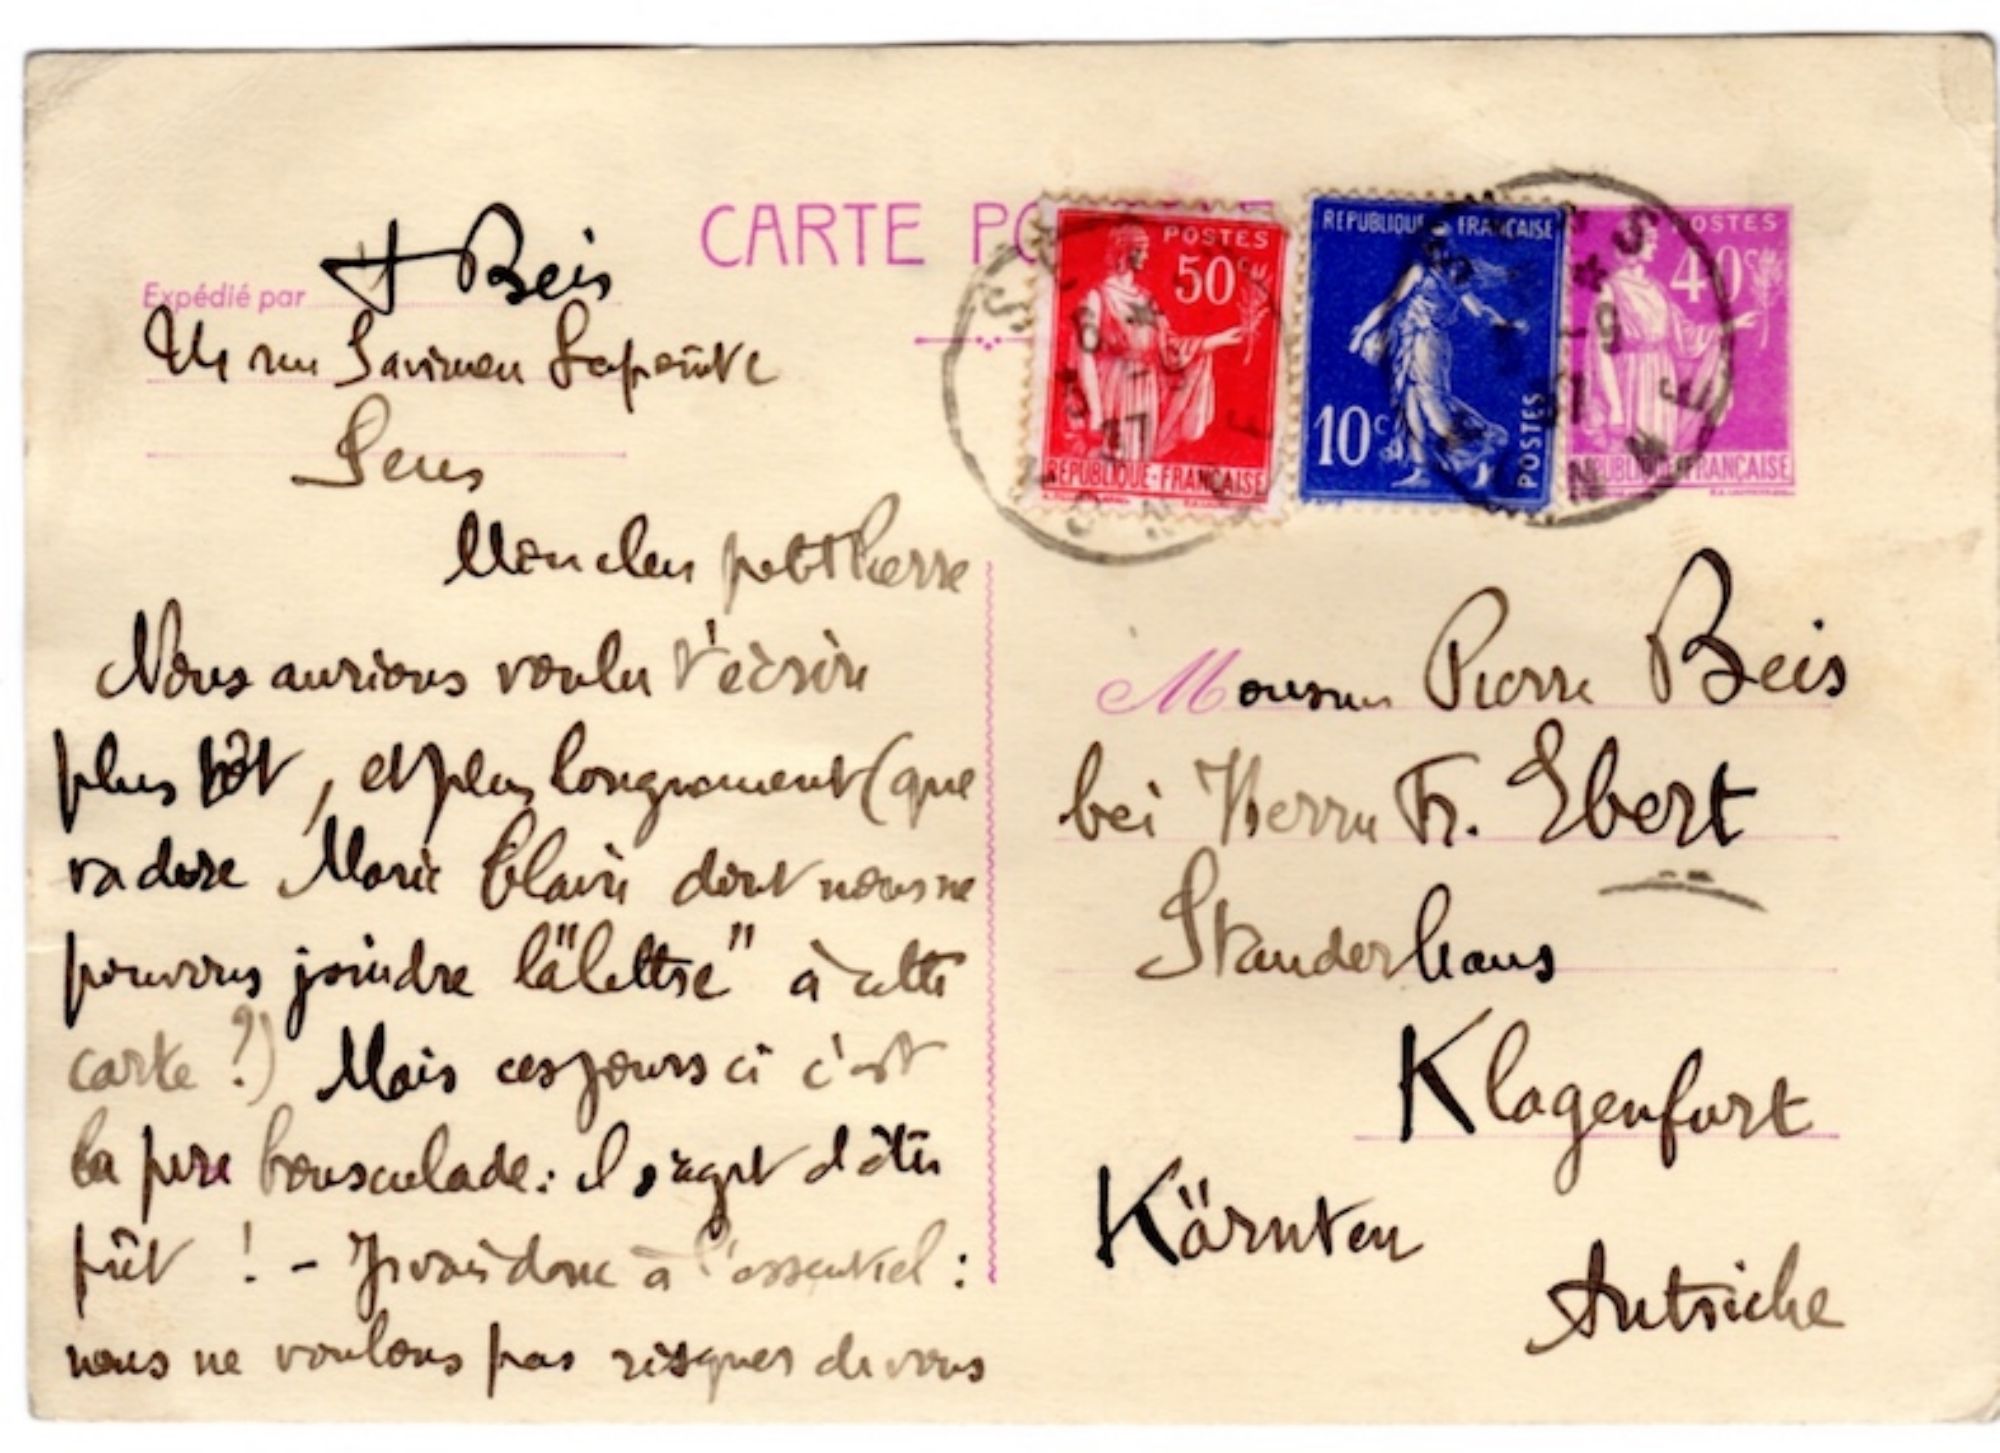 CARTE PO
Expédié par Beis
rue Savinien Lapointe
Sens
POSTES
50c
REPUBLIQUE-FRANÇAISE
REPUBLIQUE FRANÇAISE
10c
POSTES
POSTES
40c
REPUBLIQUE FRANÇAISE
SENS
6 * 
3 -9
37
YONNE
Mon cher petit Pierre
Nous aurions voulu t'écrire
plus tôt, et plus longuement (que
va dire Marie Claire dont nous ne
pouvons joindre la "lettre" à cette
carte ?) Mais ces jours ci c'est
la pire bousculade : il s'agit d'être
prêt ! - Je vais donc à l'essentiel :
nous ne voulons pas risquer de vous
Monsieur Pierre Beis
bei Herrn Fr. Ebert
Stauderhaus
Klagenfurt
Kärnten
Autriche